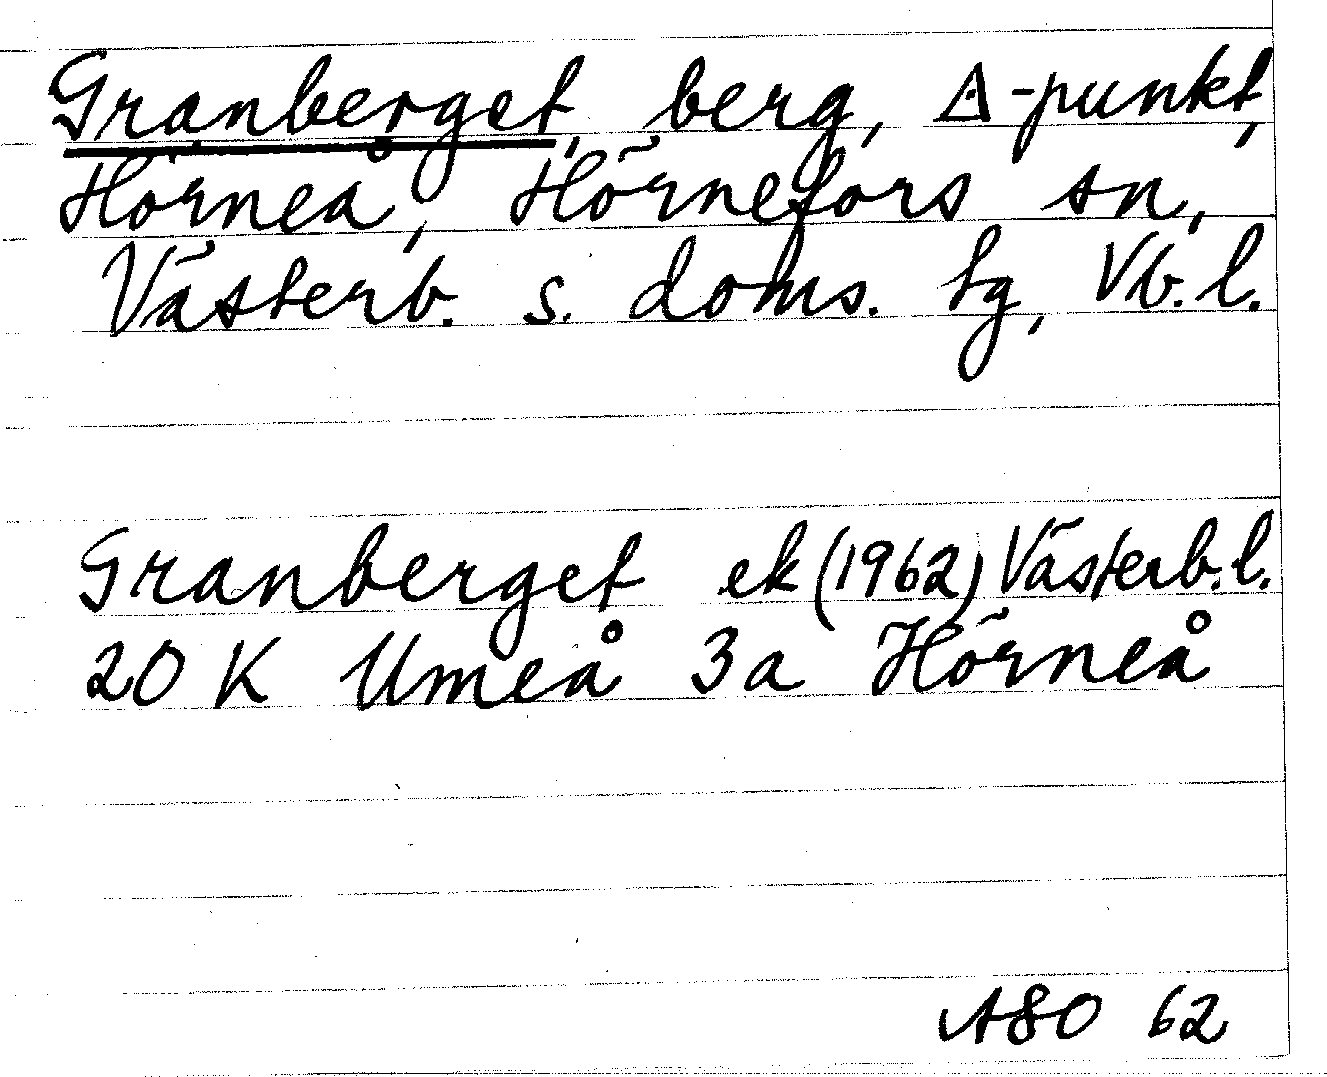 Granberget, berg, △-punkt,
Hörneå, Hörnefors sn,
Västerb. s. doms. tg, Vb. l.
Granberget ek (1962) Västerb. l.
20 K Umeå 3a Hörneå
ASO 62